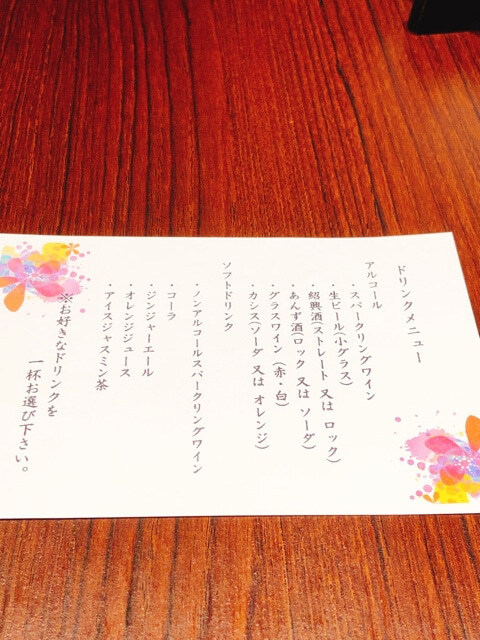 ドリンクメニュー
アルコール
・スパークリングワイン
・生ビール(小グラス)
・紹興酒(ストレート 又は ロック)
・あんず酒(ロック 又は ソーダ)
・グラスワイン (赤・白)
・カシス(ソーダ 又は オレンジ)
ソフトドリンク
・ノンアルコールスパークリングワイン
・コーラ
・ジンジャーエール
・オレンジジュース
・アイスジャスミン茶
※お好きなドリンクを
一杯お選び下さい。